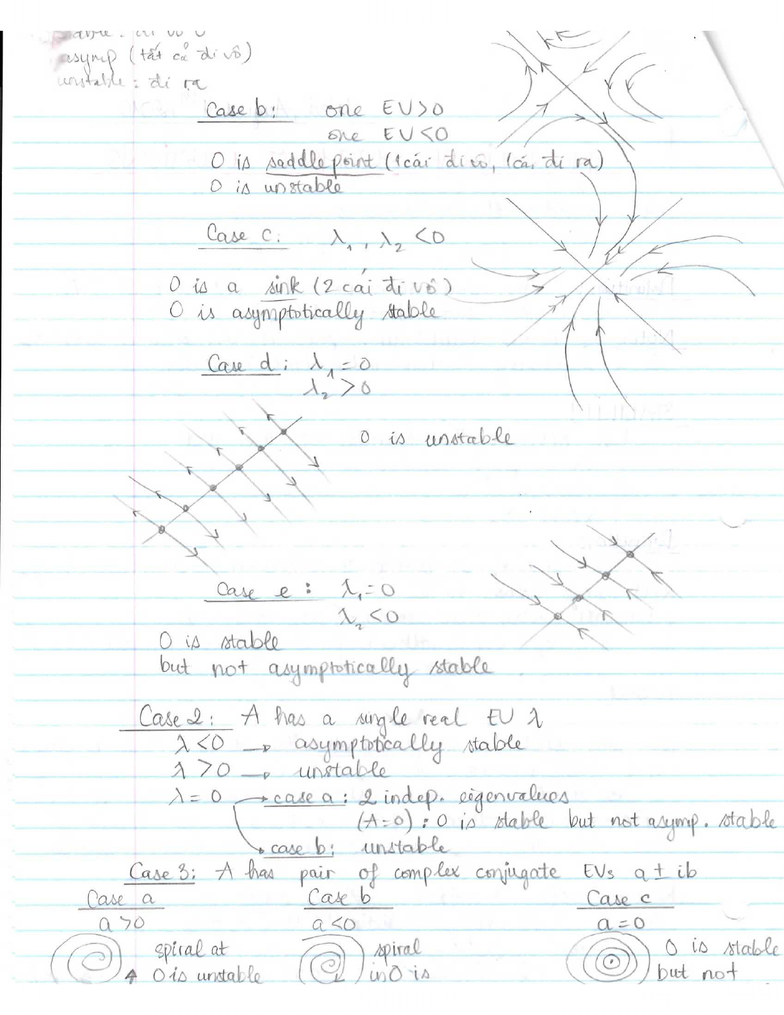 asymp (tất cả đi vô)
unstable : đi ra
Case b: one EV>0
one EV<0
0 is saddle point (1 cái đi vô, 1 cái đi ra)
0 is unstable
Case c: λ₁, λ₂ <0
0 is a sink (2 cái đi vô)
0 is asymptotically stable
Case d: λ₁=0
λ₂>0
0 is unstable
Case e: λ₁=0
λ₂<0
0 is stable
but not asymptotically stable
Case 2: A has a single real EV λ
λ<0 → asymptotically stable
λ>0 → unstable
λ=0 → case a: 2 indep. eigenvalues
(A=0) : 0 is stable but not asymp. stable
→ case b: unstable
Case 3: A has pair of complex conjugate EVs a ± ib
Case a Case b Case c
a>0 a<0 a=0
spiral at spiral 0 is stable
0 is unstable in 0 is but not